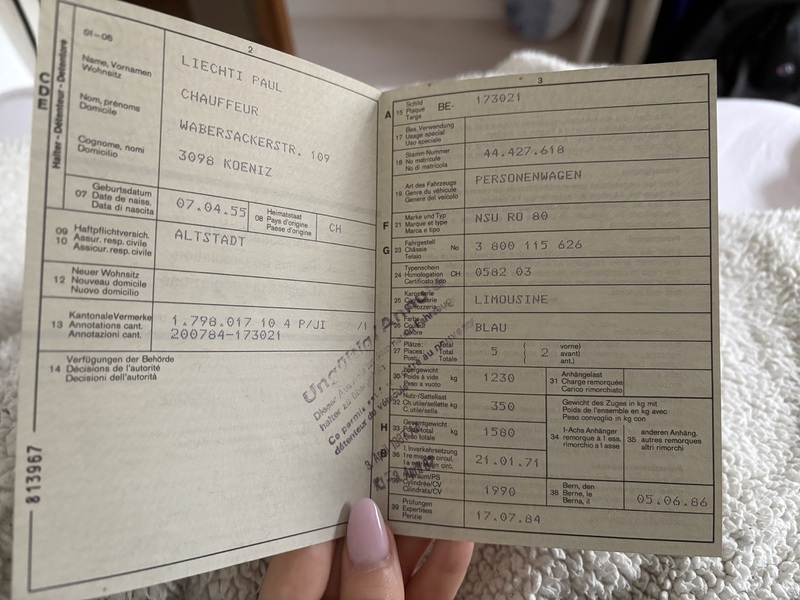 2
01-06
Name, Vornamen
Wohnsitz
Nom, prénoms
Domicile
Cognome, nomi
Domicilio
CDE
Halter - Détenteur - Detentore
LIECHTI PAUL
CHAUFFEUR
WABERSACKERSTR. 109
3098 KOENIZ
07 Geburtsdatum
Date de naiss.
Data di nascita
07.04.55
08 Heimatstaat
Pays d'origine
Paese d'origine
CH
09 Haftpflichtversich.
10 Assur. resp. civile
Assicur. resp. civile
ALTSTADT
12 Neuer Wohnsitz
Nouveau domicile
Nuovo domicilio
13 Kantonale Vermerke
Annotations cant.
Annotazioni cant.
1.798.017 10 4 P/JI /1
200784-173021
14 Verfügungen der Behörde
Décisions de l'autorité
Decisioni dell'autorità
813967
Ungültig / Annulé
3
A 15 Schild
Plaque
Targa
BE- 173021
17 Bes. Verwendung
Usage spécial
Uso speciale
18 Stamm-Nummer
No matricule
No di matricola
44.427.618
19 Art des Fahrzeugs
Genre du véhicule
Genere del veicolo
PERSONENWAGEN
F 21 Marke und Typ
Marque et type
Marca e tipo
NSU RO 80
G 23 Fahrgestell
Châssis No
Telaio
3 800 115 626
24 Typenschein
Homologation CH
Certificato tipo
0582 03
25 Karosserie
LIMOUSINE
BLAU
27 Plätze: Total
Places: Total
Totale
5 ( 2 vorne)
avant)
ant.)
30 Leergewicht
Poids à vide kg
Peso a vuoto
1230
31 Anhängelast
Charge remorquée
Carico rimorchiato
32 Nutz-/Sattellast
Ch. utile/sellette kg
C. utile/sella
350
Gewicht des Zuges in kg mit
Poids de l'ensemble en kg avec
Peso convoglio in kg con
H 33 Gesamtgewicht
Poids total kg
Peso totale
1580
34 1-Achs Anhänger
remorque à 1 ess.
rimorchio a 1 asse
35 anderen Anhäng.
autres remorques
altri rimorchi
B 36 1. Inverkehrsetzung
1re mise en circul.
21.01.71
Cylindrée/CV
Cilindrata/CV
1990
38 Bern, den
Berne, le
Berna, il
05.06.86
39 Prüfungen
Expertises
Perizie
17.07.84